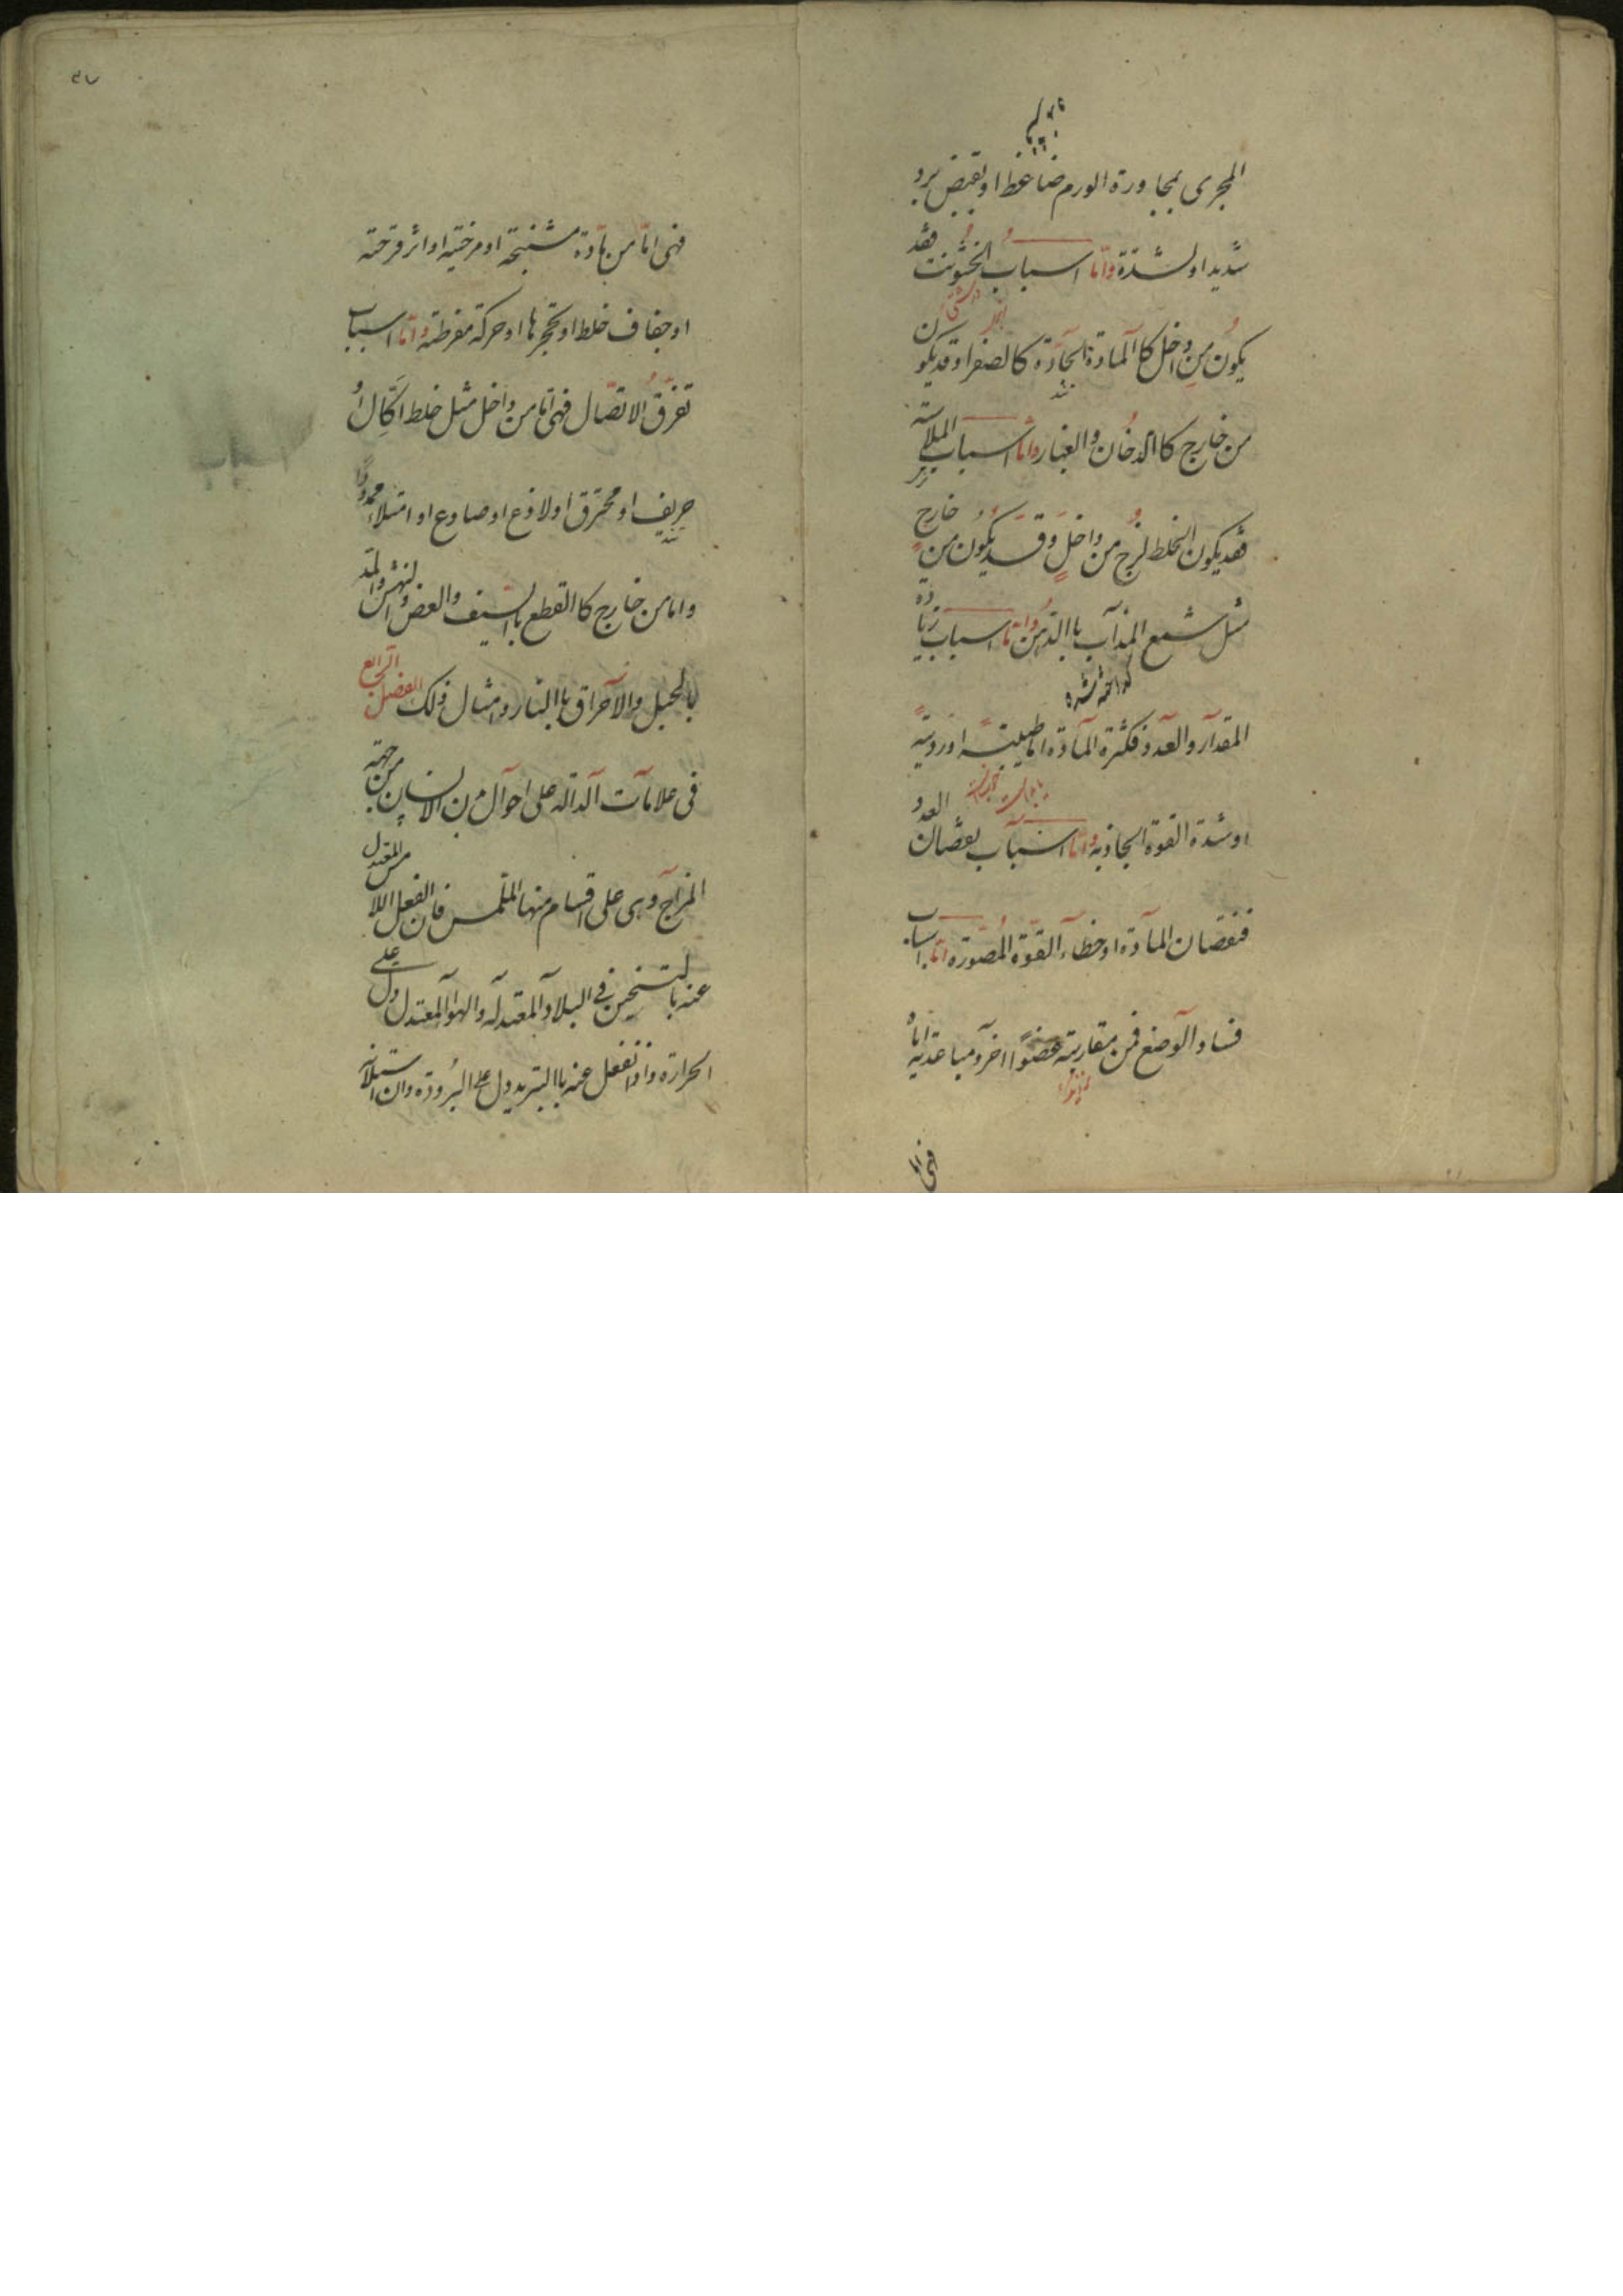 المجرى بمجاورة الورم ضاغط او تقبض برد
شديد او لشدة واما اسباب الخشونت فقد
يكون من داخل كا المادة الحادة كالصفرا وقد يكون
من خارج كا الدخان والغبار واما اسباب الملاسته
فقد يكون الخلط لزج من داخل وقد يكون من خارج
مثل شمع المذاب با الدهن واما اسباب زيادة
المقدار والعدد فكثرة المادة اما طبيية او ردية
او شدة القوة الجاذبه واما اسباب نقصان العدد
فنقصان المادة او خطاء القوة المصورة اما اسباب
فساد الوضع فمن مقاربته عضوا اخر ومباعدتيه اما
فهى
فهى اما من مادة مشنجة او مرخيته او اثر قرحته
او جفاف خلط او تحجرها او حركة مفرطة واما اسباب
تفرق الاتصال فهى اما من داخل مثل خلط اكال او
حريف او محترق او لاذع او صادع او امتلاء ممدد
واما من خارج كا القطع با السيف والعض والنهش والمد
بالحبل والاحراق با النار وامثال ذلك الفصل الرابع
فى علامات الدالة على احوال بدن الانسان من جهته
المزاج وهى على اقسام منها الملمس فان الفعل اللامس المعتدل
عنه بالتسخين فى البلاد المعتدله والهوا المعتدل دل على
الحرارة واذا نفعل عنه با التبريد دل على البرودة وان استلانه